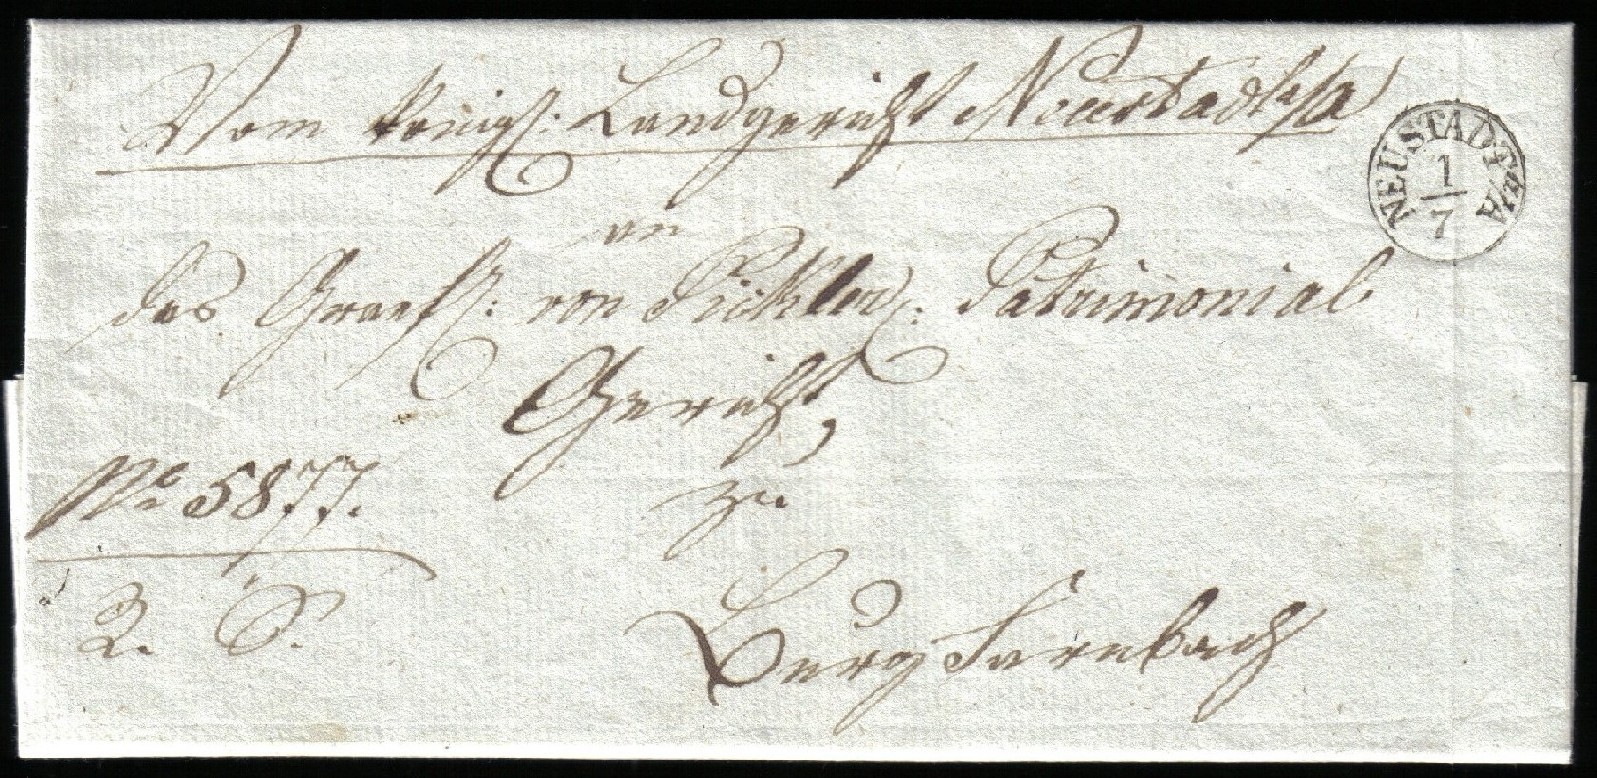 Vom königl: Landgericht Neustadt a/a
NEUSTADT a/A
1
7
an
das Graefl: von Pücklersch: Patrimonial
Gericht,
zu
No 5877.
R. S.
Burg Farnbach